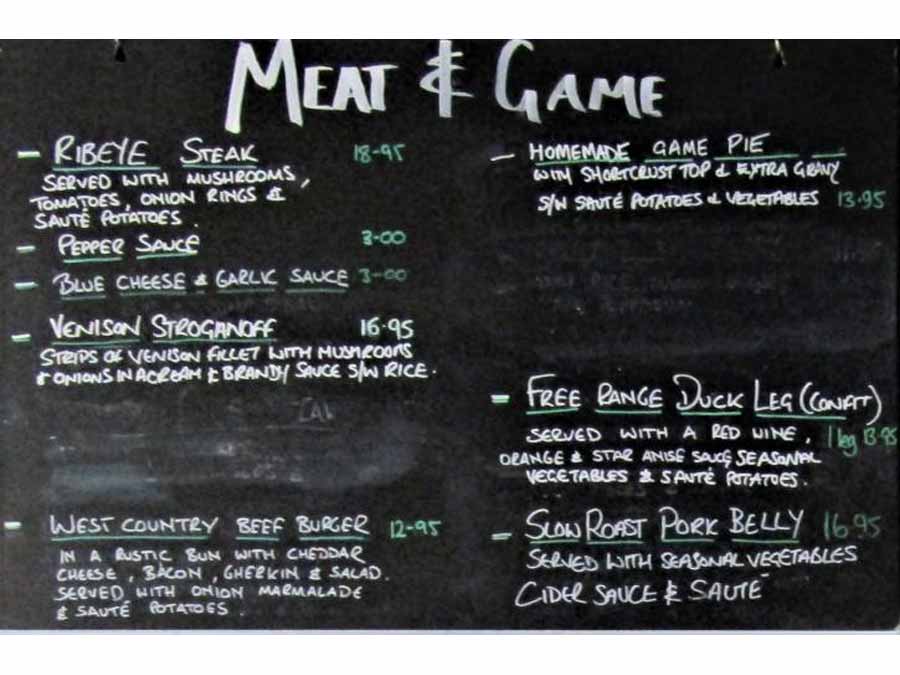 MEAT & GAME
- RIBEYE STEAK 18-95
SERVED WITH MUSHROOMS,
TOMATOES, ONION RINGS &
SAUTÉ POTATOES.
- PEPPER SAUCE 3-00
- BLUE CHEESE & GARLIC SAUCE 3-00
- VENISON STROGANOFF 16.95
STRIPS OF VENISON FILLET WITH MUSHROOMS
& ONIONS IN A CREAM & BRANDY SAUCE S/W RICE.
- WEST COUNTRY BEEF BURGER 12-95
IN A RUSTIC BUN WITH CHEDDAR
CHEESE, BACON, GHERKIN & SALAD.
SERVED WITH ONION MARMALADE
& SAUTÉ POTATOES.
- HOMEMADE GAME PIE
WITH SHORTCRUST TOP & EXTRA GRAVY
S/W SAUTÉ POTATOES & VEGETABLES 13.95
- FREE RANGE DUCK LEG (CONFIT)
SERVED WITH A RED WINE, 1 leg 13.95
ORANGE & STAR ANISE SAUCE SEASONAL
VEGETABLES & SAUTÉ POTATOES.
- SLOW ROAST PORK BELLY 16.95
SERVED WITH SEASONAL VEGETABLES
CIDER SAUCE & SAUTÉ